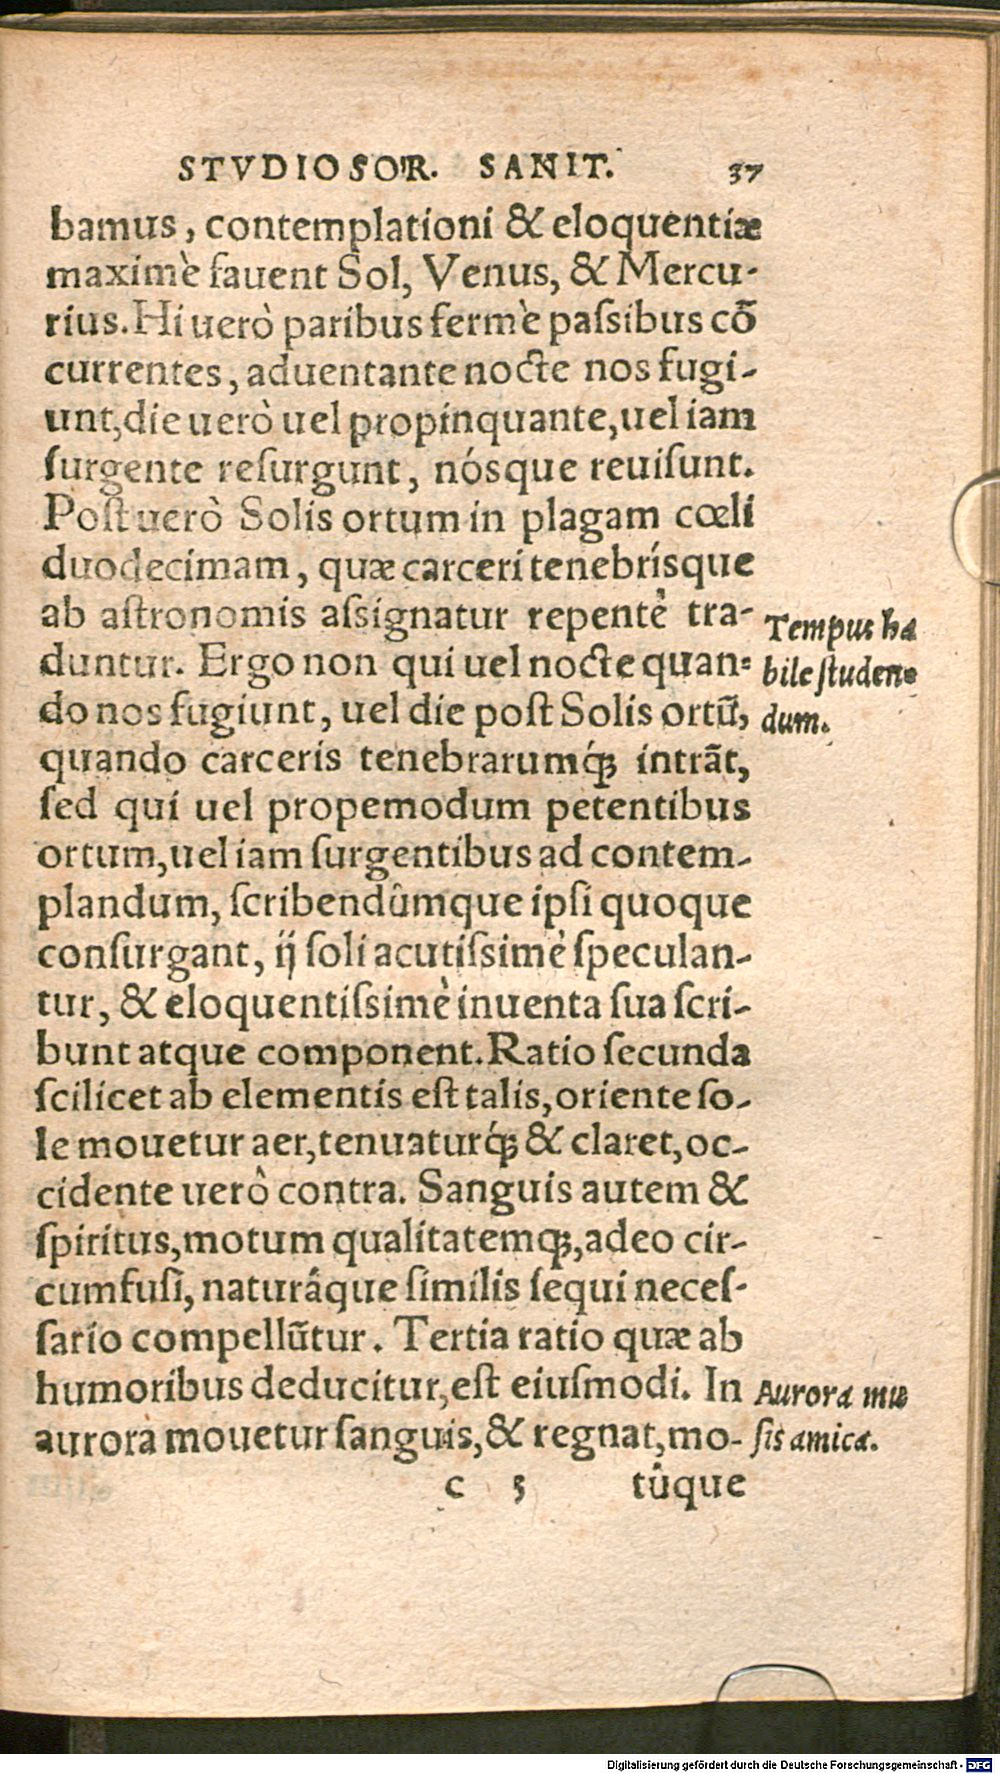 STVDIOSOR. SANIT. 37
bamus, contemplationi & eloquentiæ
maximè fauent Sol, Venus, & Mercu-
rius. Hi uerò paribus fermè paſsibus cõ
currentes, aduentante nocte nos fugi-
unt, die uerò uel propinquante, uel iam
ſurgente reſurgunt, nósque reuiſunt.
Poſt uerò Solis ortum in plagam cœli
duodecimam, quæ carceri tenebrísque
ab aſtronomis aſsignatur repentè tra-
duntur. Ergo non qui uel nocte quan-
do nos fugiunt, uel die poſt Solis ortũ,
quando carceris tenebrarumq́ꝫ intrãt,
ſed qui uel propemodum petentibus
ortum, uel iam ſurgentibus ad contem-
plandum, ſcribendûmque ipſi quoque
conſurgant, ij ſoli acutiſsimè ſpeculan-
tur, & eloquentiſsimè inuenta ſua ſcri-
bunt atque component. Ratio ſecunda
ſcilicet ab elementis eſt talis, oriente ſo-
le mouetur aer, tenuaturq́ꝫ & claret, oc-
cidente uerò contra. Sanguis autem &
ſpiritus, motum qualitatemqꝫ, adeo cir-
cumfuſi, naturâque ſimilis ſequi neceſ-
ſario compellũtur. Tertia ratio quæ ab
humoribus deducitur, eſt eiuſmodi. In
aurora mouetur ſanguis, & regnat, mo-
c 5 tûque
Tempus ha
bile ſtuden-
dum.
Aurora mu
ſis amica.
Digitalisierung gefördert durch die Deutsche Forschungsgemeinschaft - DFG